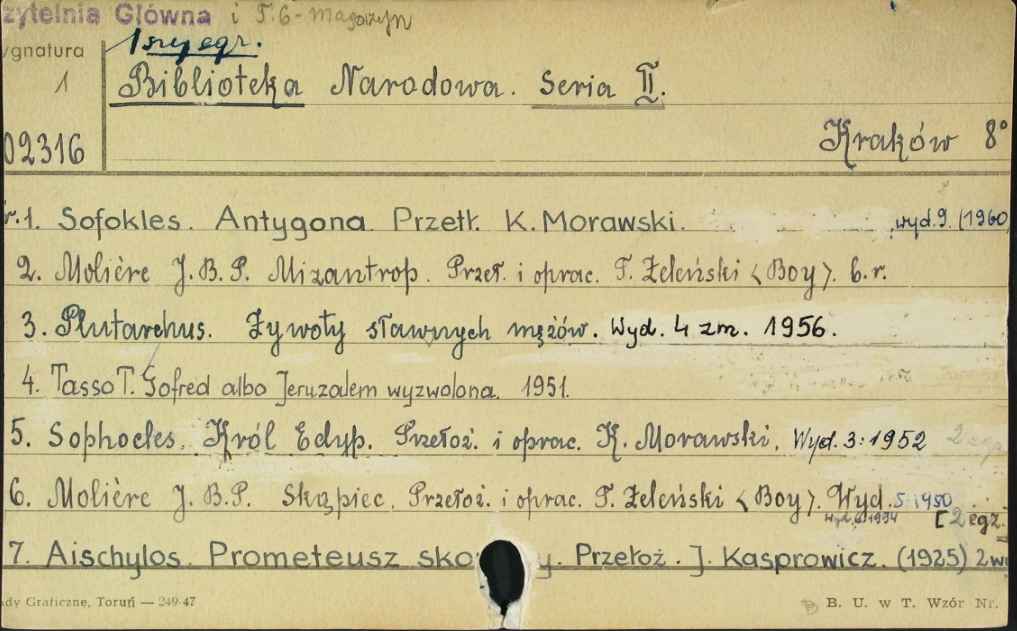 zytelnia Główna i P.6-magazyn
ygnatura
1
1szy egz.
Biblioteka Narodowa. Seria II.
02316
Kraków 8°
r.1. Sofokles. Antygona Przetł. K. Morawski. wyd.9. (1960
2. Molière J.B.P. Mizantrop. Przeł. i oprac. T. Żeleński <Boy>. b.r.
3. Plutarchus. Żywoty sławnych mężów. Wyd. 4 zm. 1956.
4. Tasso T. Gofred albo Jeruzalem wyzwolona. 1951.
5. Sophocles. Król Edyp. Przełoż. i oprac. K. Morawski. Wyd. 3: 1952 2 egz
6. Molière J.B.P. Skąpiec. Przełoż. i oprac. T. Żeleński <Boy>. Wyd. 5 1950
[2 egz.
7. Aischylos. Prometeusz sko y. Przełoż. J. Kasprowicz. (1925) 2 w
ady Graficzne, Toruń — 249-47
B. U. w T. Wzór Nr.